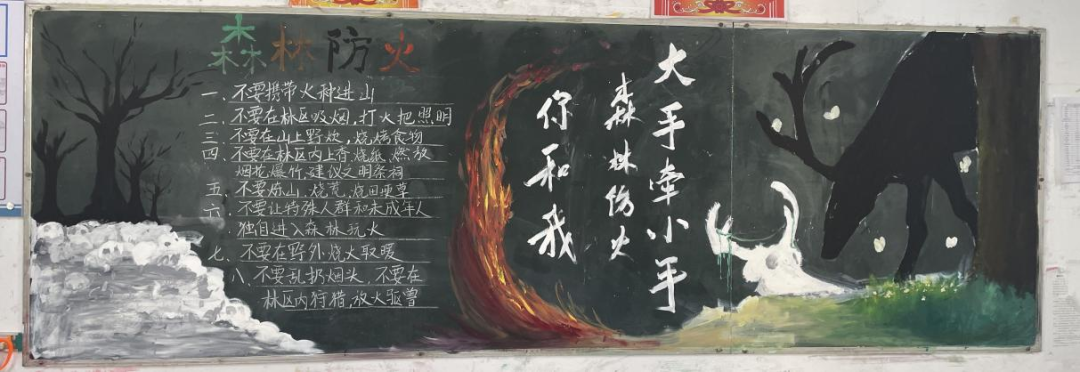 森林防火
一、不要携带火种进山
二、不要在林区吸烟,打火把照明
三、不要在山上野炊,烧烤食物
四、不要在林区内上香、烧纸、燃放
烟花爆竹,建议文明祭祠
五、不要炼山、烧荒、烧田埂草
六、不要让特殊人群和未成年人
独自进入森林玩火
七、不要在野外烧火取暖
八、不要乱扔烟头,不要在
林区内狩猎,放火驱兽
大手牵小手
森林防火
你和我